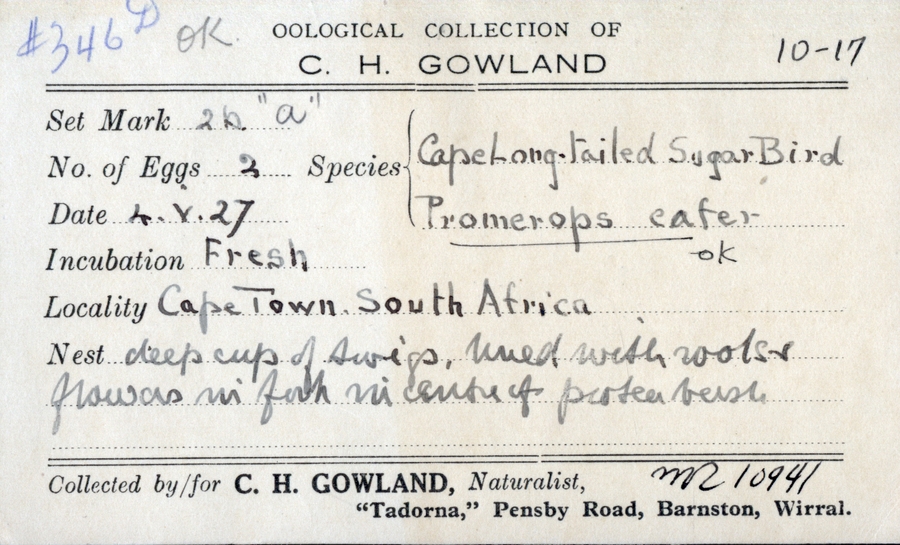 #346 D OK. OOLOGICAL COLLECTION OF
C. H. GOWLAND 10-17
Set Mark 2b. "a"
No. of Eggs 2 Species Cape Long-Tailed Sugar Bird
Date 4.V.27 Promerops cafer
Incubation Fresh OK
Locality Cape Town. South Africa
Nest deep cup of twigs, lined with roots &
flowers in fork in centre of protea bush
Collected by/for C. H. GOWLAND, Naturalist, 10941
"Tadorna," Pensby Road, Barnston, Wirral.